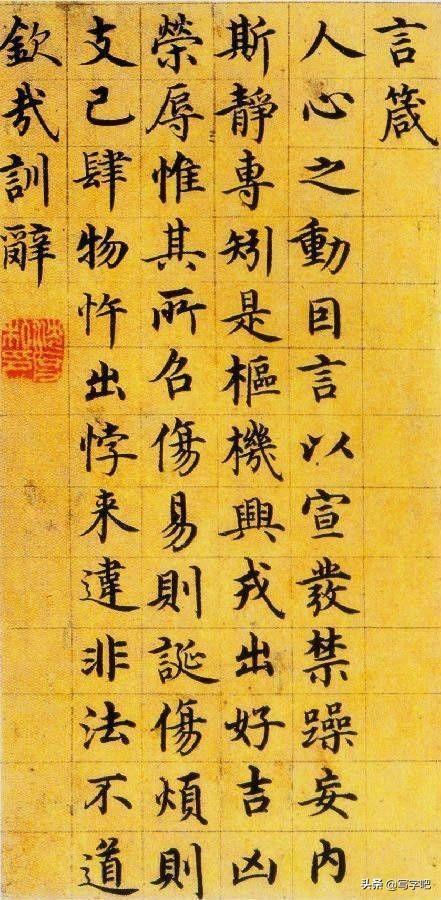 言箴
人心之動因言以宣發禁躁妄内
斯靜專矧是樞機興戎出好吉凶
榮辱惟其所召傷易則誕傷煩則
支己肆物忤出悖来違非法不道
欽哉訓辭
头条 @写字吧